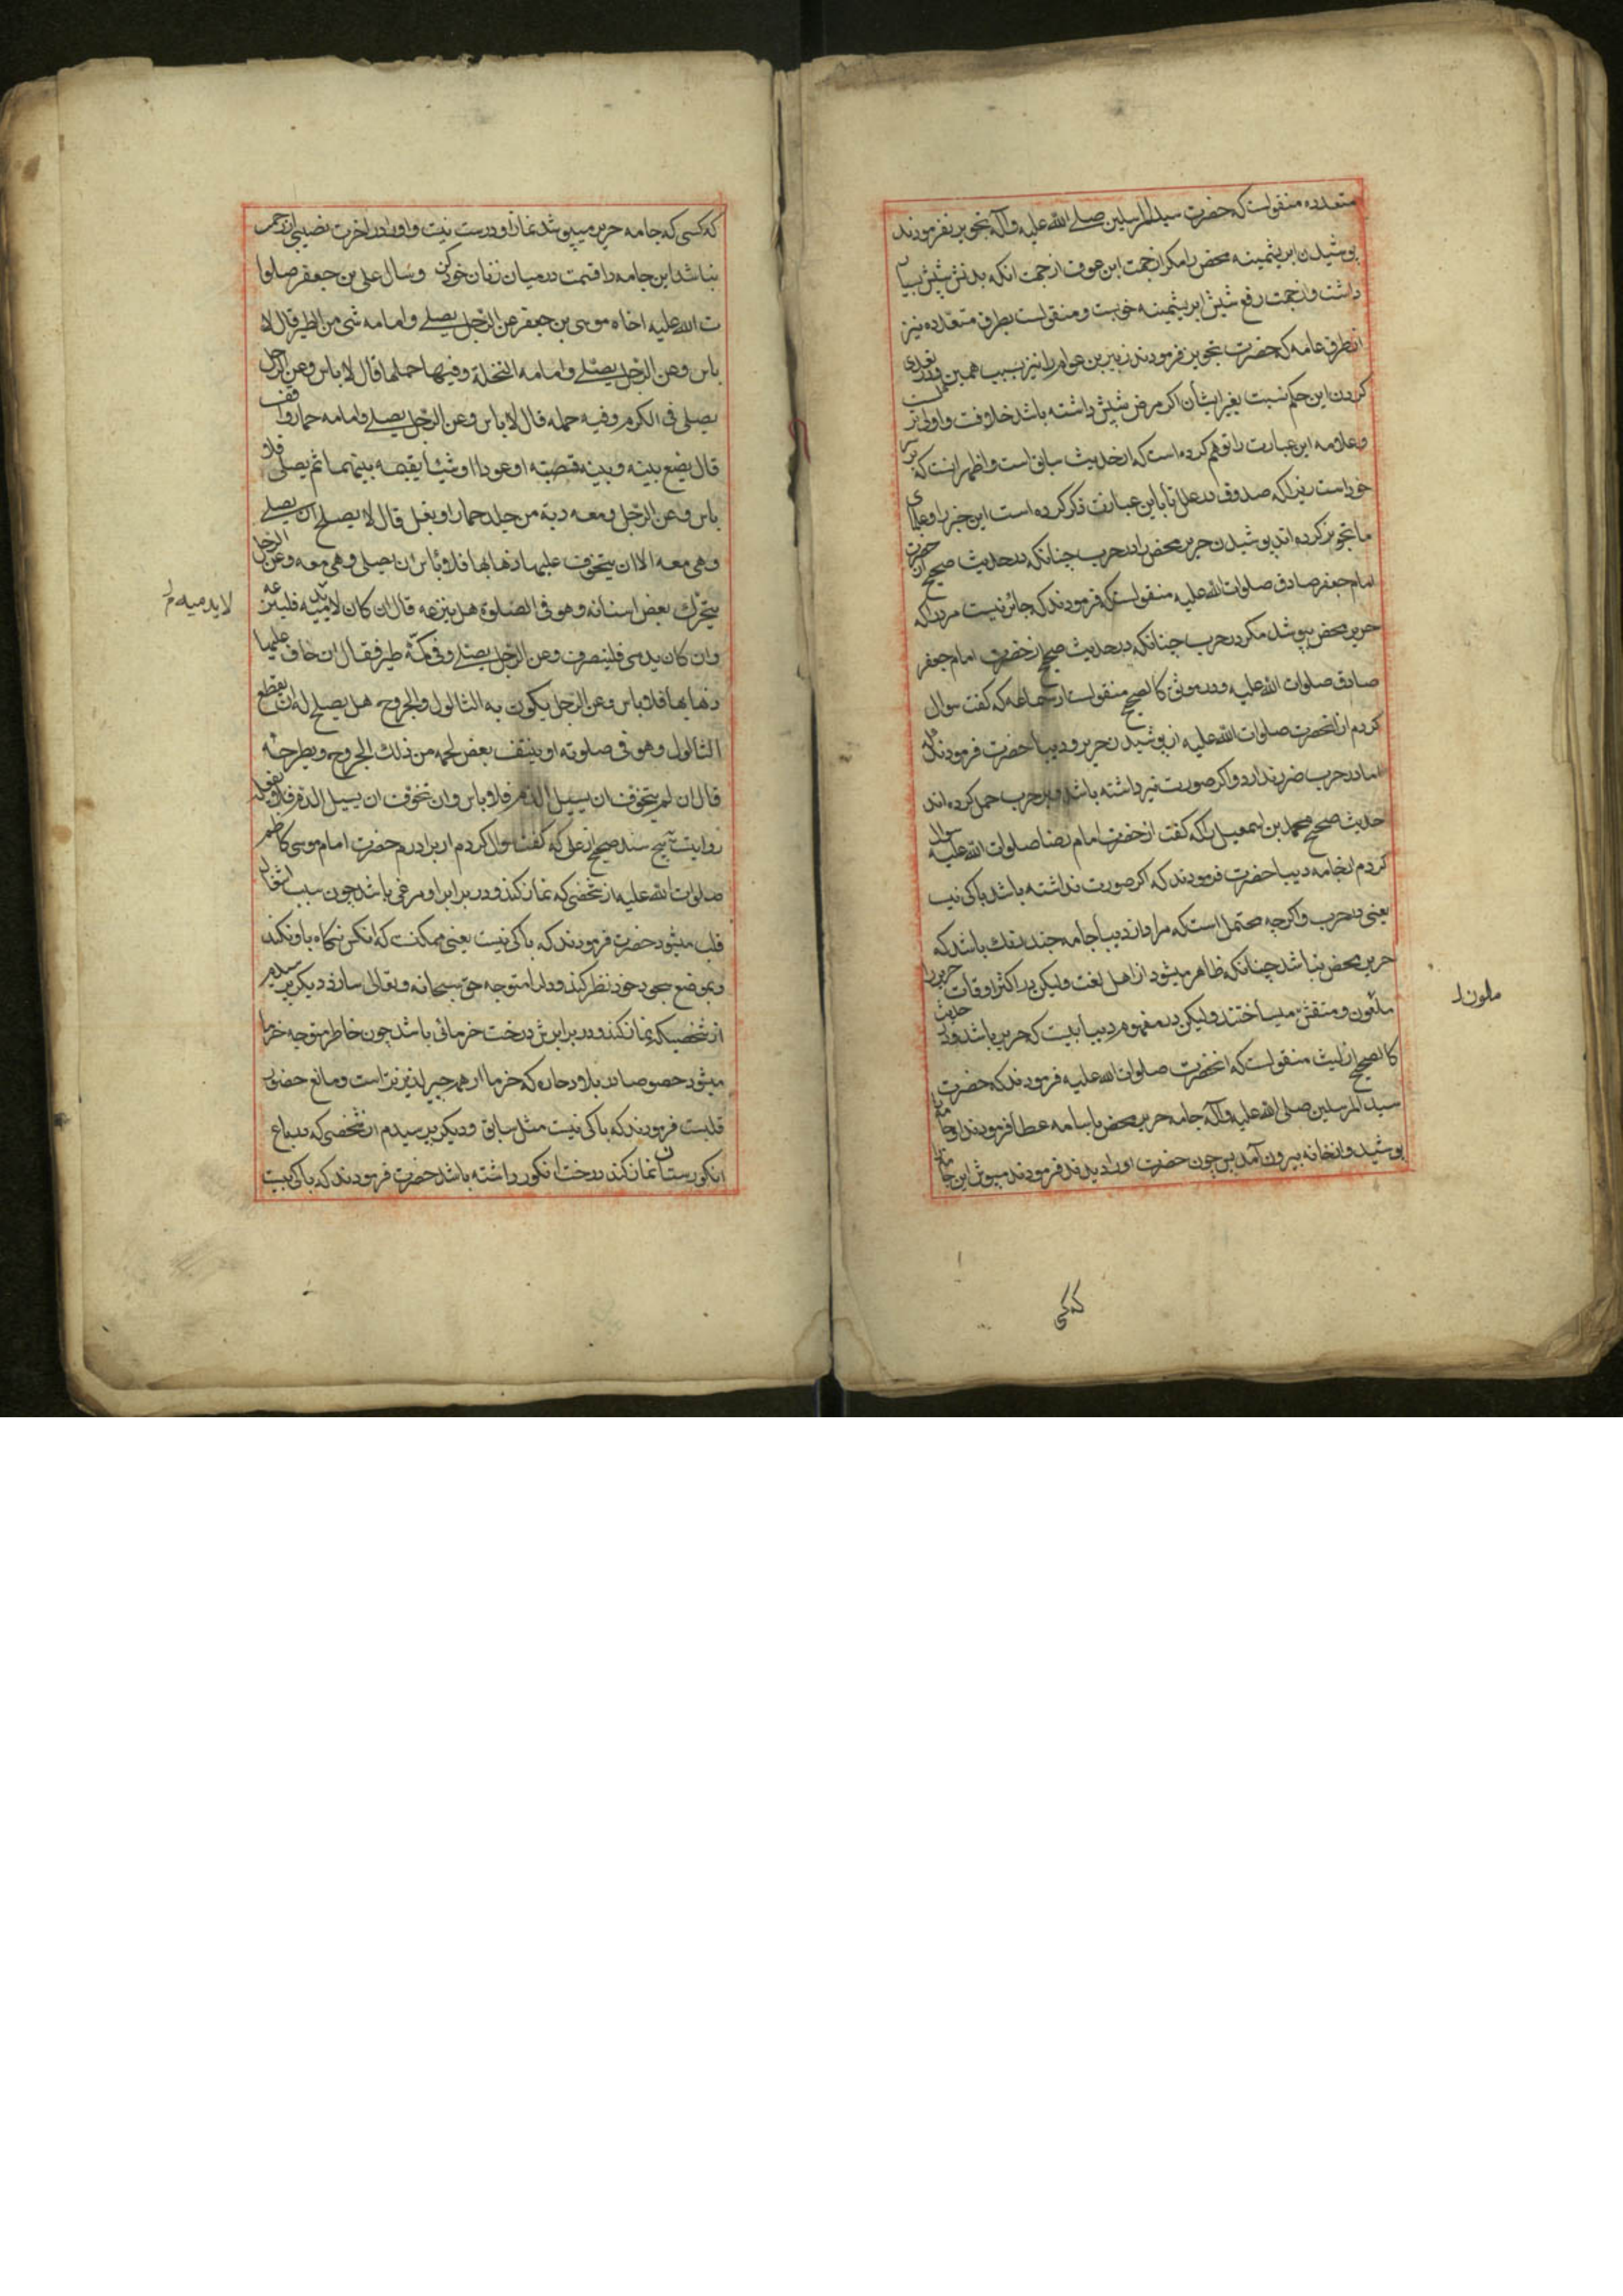 متعدده منقولست که حضرت سید المرسلین صلی الله علیه و آله تجویز نفرمودند
پوشیدن ابریشمینه محض را مکر از جهت ابن عوف از جهت انکه بدنش شپش بسیار
داشت و از جهت رفع شپش ابریشمینه خوبست و منقولست بطرق متعدده نیز
از طرق عامه که حضرت تجویز فرمودند زبیر بن عوام را نیز بسبب همین علت و تعدی
کردن این حکم نسبت بغیر ایشان اکر مرض شپش داشته باشد خلافست و اولی ترکست
و علامه این عبارت را توهم کرده است که از حدیث سابق است و اظهر انست که
خود است زیرا که صدوق در علل تا باین عبارت ذکر کرده است این خبر را و علمای
ما تجویز کرده اند پوشیدن حریر محض را در حرب چنانکه در حدیث صحیح از حضرت
امام جعفر صادق صلوات الله علیه منقولست که فرمودند که جائز نیست مرد را که
حریر محض بپوشد مکر در حرب چنانکه در حدیث صحیح از حضرت امام جعفر
صادق صلوات الله علیه و در موثق کالصحیح منقولست از سماعه که کفت سوال
کردم از انحضرت صلوات الله علیه از پوشیدن حریر و دیبا حضرت فرمودند که
اما در حرب ضرر ندارد و اکر صورت نیز داشته باشد و بر حرب حمل کرده اند
حدیث صحیح محمد بن اسمعیل را که کفت از حضرت امام رضا صلوات الله علیه سوال
کردم از جامه دیبا حضرت فرمودند که اکر صورت نداشته باشد باکی نیست
یعنی در حرب و اکرچه محتمل است که مراد از دیبا جامه چند رنک باشد که
حریر محض نباشد چنانکه ظاهر میشود از اهل لغت ولیکن در اکثر اوقات حریر را
ملون و منقش میساختند ولیکن در مفهوم دیبا نیست که حریر باشد و در حدیث
کالصحیح از لیث منقولست که انحضرت صلوات الله علیه فرمودند که حضرت
سید المرسلین صلی الله علیه و آله جامه حریر محض با سامه عطا فرمودند او جامه
پوشید و از خانه بیرون آمد پس چون حضرت او را دیدند فرمودند مپوش این جامه را
ملون
که کسی
که کسی که جامه حریر میپوشد نماز او درست نیست و او را در اخرت نصیبی از رحمت
نباشد این جامه را قسمت در میان زنان خود کن وسال علی بن جعفر صلوا
ت الله علیه اخاه موسی بن جعفر عن الرجل یصلی وامامه شی من الطیر قال لا
باس وعن الرجل یصلی وامامه النخلة وفیها حملها قال لا باس وعن الرجل
یصلی فی الکرم وفیه حمله قال لا باس وعن الرجل یصلی وامامه حمار واقف
قال یضع بینه وبینه قصبة او عودا او شیئا یقیمه بینهما ثم یصلی فلا
باس وعن الرجل ومعه دبة من جلد حمار او بغل قال لا یصلح ان یصلی
وهی معه الا ان یتخوف علیها ذهابها فلا باس ان یصلی وهی معه وعن الرجل
یتحرک بعض اسنانه وهو فی الصلوة هل ینزعه قال ان کان لا یدمیه فلینزعه
وان کان یدمی فلینصرف وعن الرجل یصلی وفی کمه طیر فقال ان خاف علیها
ذهابها فلا باس وعن الرجل یکون به الثالول والجروح هل یصلح له ان یقطع
الثالول وهو فی صلوته او ینتف بعض لحمه من ذلک الجروح ویطرحه
قال ان لم یتخوف ان یسیل الدم فلا باس وان تخوف ان یسیل الدم فلا یفعله
روایتست بپنج سند صحیح از علی که کفت سوال کردم از برادرم حضرت امام موسی کاظم
صلوات الله علیه از شخصی که نماز کند و در برابر او مرغی باشد چون سبب اشتغال
قلب میشود حضرت فرمودند که باکی نیست یعنی ممکنست که انکس نکاه باو نکند
و بموضع سجود خود نظر کند و دل را متوجه حق سبحانه و تعالی سازد دیکر پرسیدم
از شخصیکه نماز کند و در برابرش درخت خرمائی باشد چون خاطر متوجه خرما
میشود خصوصا در بلاد حاره که خرما از همه چیز لذیذتر است و مانع حضور
قلبست فرمودند که باکی نیست مثل سابق و دیکر پرسیدم از شخصی که در باغ
انکورستان نماز کند درخت انکور داشته باشد حضرت فرمودند که باکی نیست
لا یدمیه